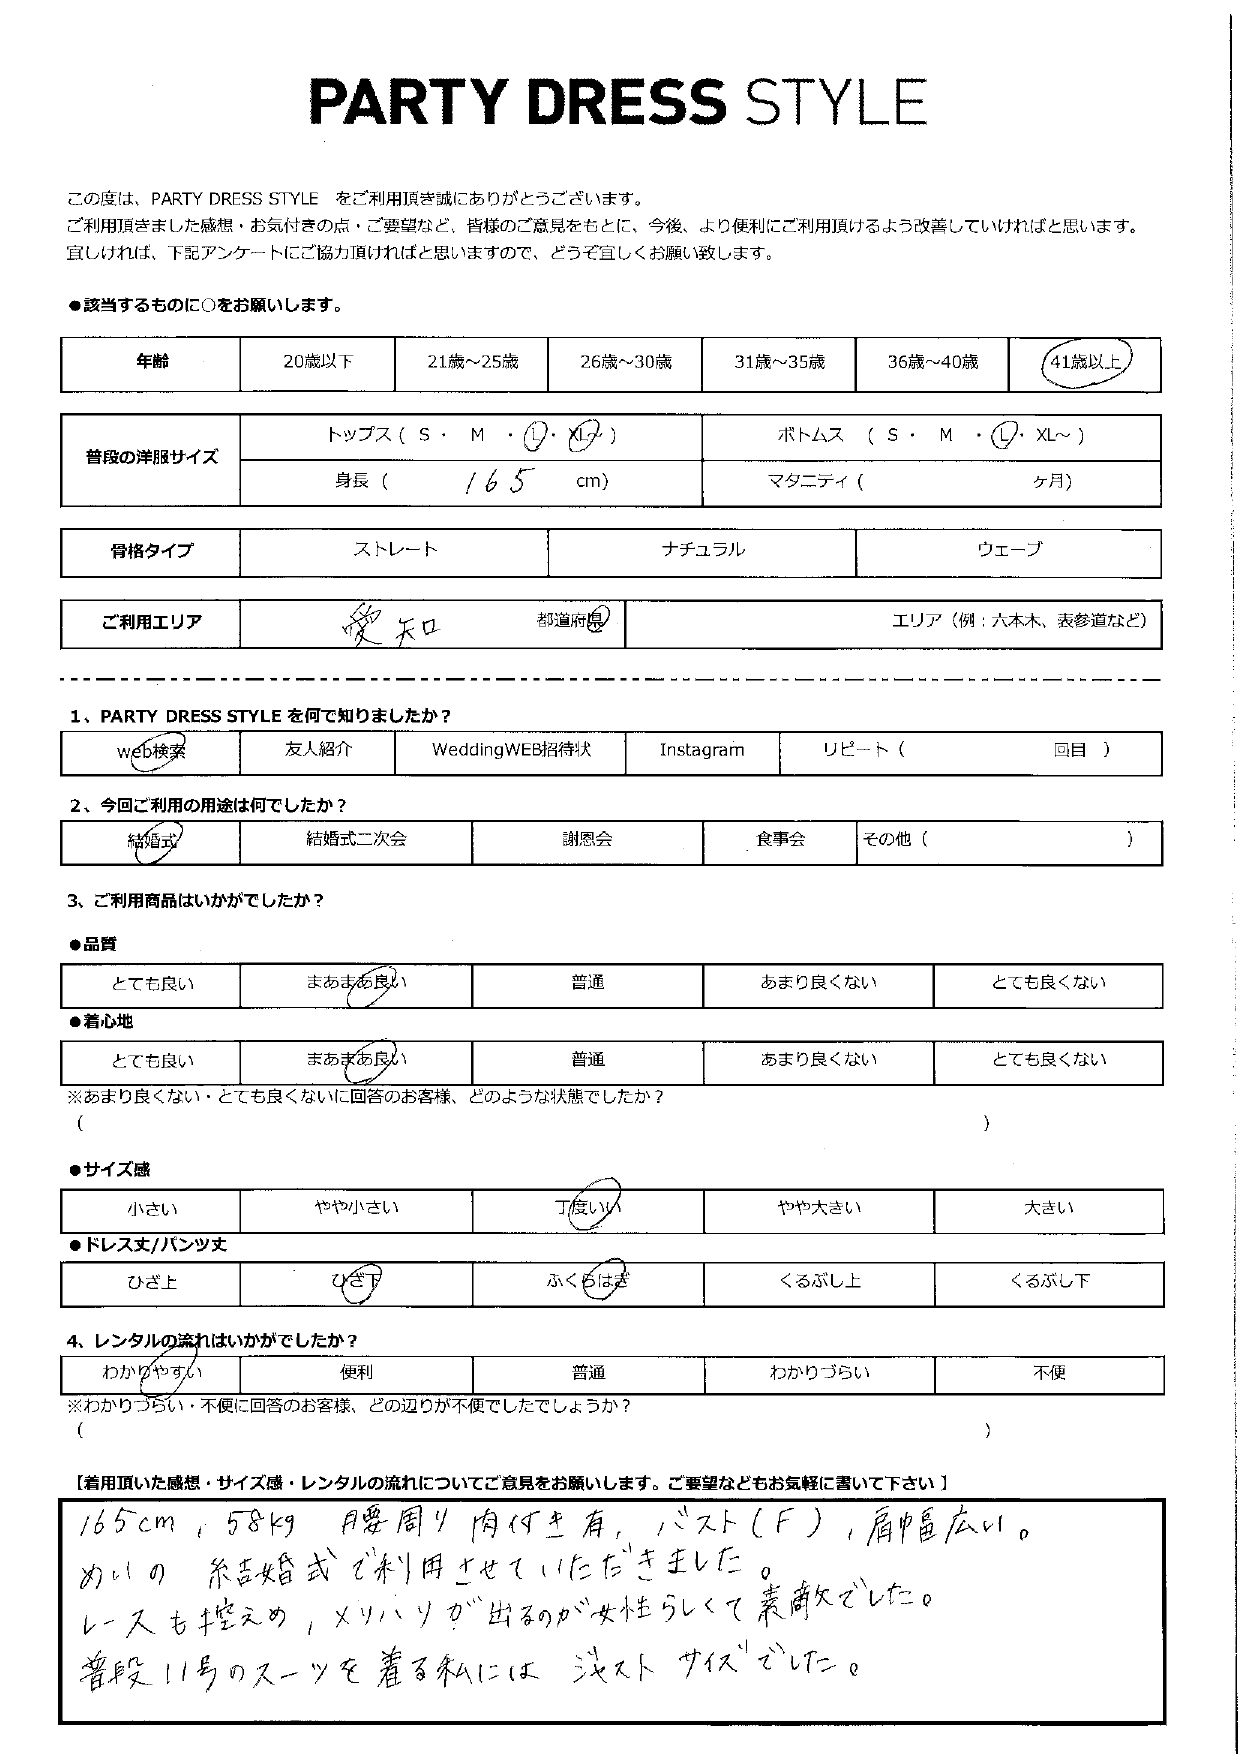 PARTY DRESS STYLE
この度は、PARTY DRESS STYLE をご利用頂き誠にありがとうございます。
ご利用頂きました感想・お気付きの点・ご要望など、皆様のご意見をもとに、今後、より便利にご利用頂けるよう改善していければと思います。
宜しければ、下記アンケートにご協力頂ければと思いますので、どうぞ宜しくお願い致します。
●該当するものに○をお願いします。
年齢 20歳以下 21歳～25歳 26歳～30歳 31歳～35歳 36歳～40歳 41歳以上
普段の洋服サイズ
トップス ( S ・ M ・ L ・ XL～ ) ボトムス ( S ・ M ・ L ・ XL～ )
身長 ( 165 cm) マタニティ ( ヶ月)
骨格タイプ ストレート ナチュラル ウェーブ
ご利用エリア 愛知 都道府県 エリア（例：六本木、表参道など）
1、PARTY DRESS STYLE を何で知りましたか？
web検索 友人紹介 WeddingWEB招待状 Instagram リピート ( 回目 )
2、今回ご利用の用途は何でしたか？
結婚式 結婚式二次会 謝恩会 食事会 その他 ( )
3、ご利用商品はいかがでしたか？
●品質
とても良い まあまあ良い 普通 あまり良くない とても良くない
●着心地
とても良い まあまあ良い 普通 あまり良くない とても良くない
※あまり良くない・とても良くないに回答のお客様、どのような状態でしたか？
( )
●サイズ感
小さい やや小さい 丁度いい やや大きい 大きい
●ドレス丈/パンツ丈
ひざ上 ひざ下 ふくらはぎ くるぶし上 くるぶし下
4、レンタルの流れはいかがでしたか？
わかりやすい 便利 普通 わかりづらい 不便
※わかりづらい・不便に回答のお客様、どの辺りが不便でしたでしょうか？
( )
【着用頂いた感想・サイズ感・レンタルの流れについてご意見をお願いします。ご要望などもお気軽に書いて下さい】
165cm, 58kg 腰周り 肉付き有, バスト(F), 肩幅広い。
めいの 結婚式で利用させていただきました。
レースも控えめ, メリハリが出るのが女性らしくて素敵でした。
普段11号のスーツを着る私には ジャスト サイズでした。